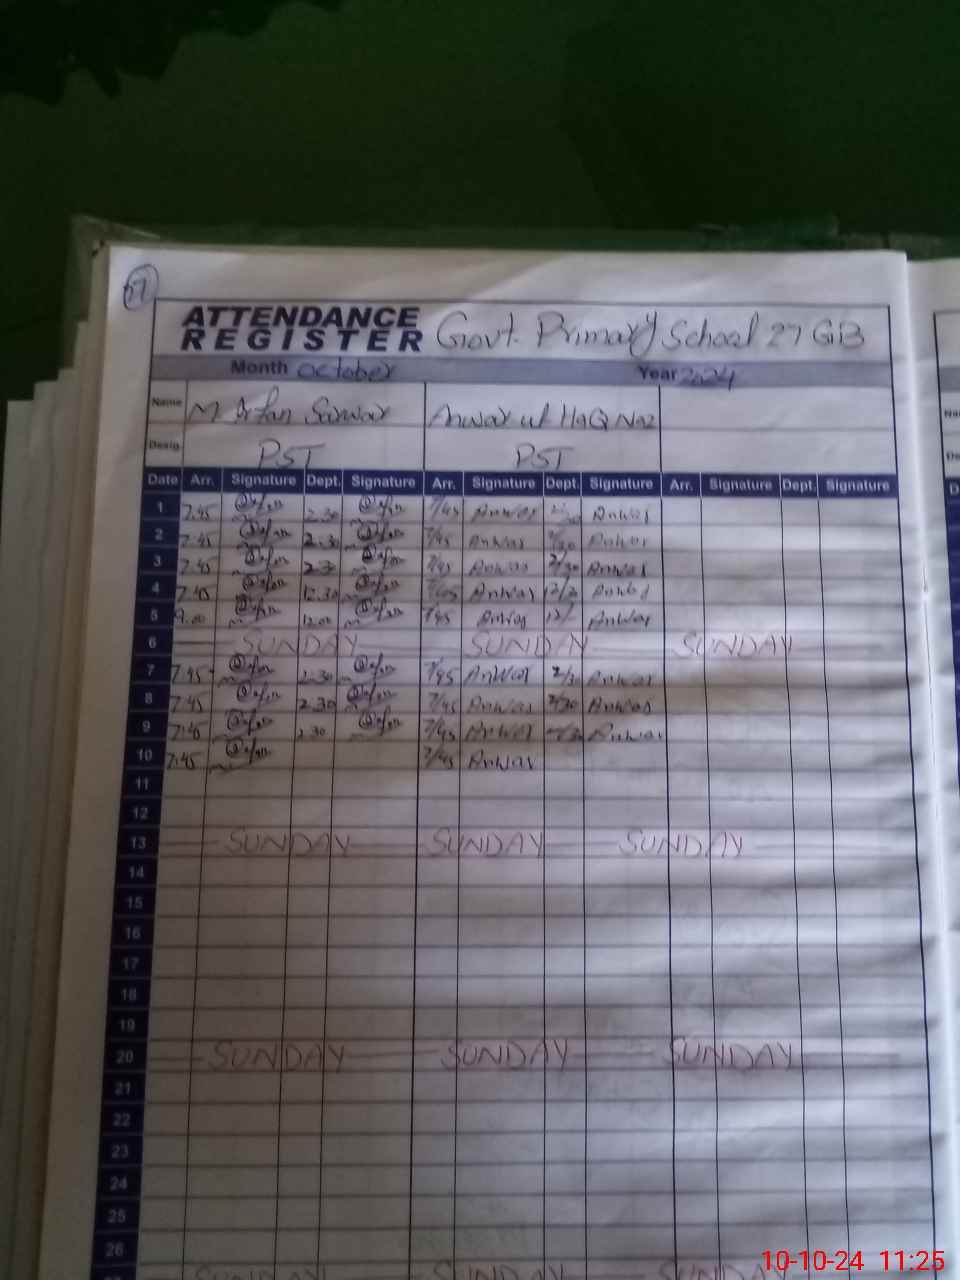 ATTENDANCE
REGISTER Govt. Primary School 27 GB
Month October Year 2024
Name M Irfan Sarwar Anwar ul HaQ Naz
Desig. PST PST
Date Arr. Signature Dept. Signature Arr. Signature Dept. Signature Arr. Signature Dept. Signature
1 7.45 2.30 7/45 Anwar Anwar
2 7.45 2.30 7/45 Anwar 2/30 Anwar
3 7.45 2.30 7/45 Anwar 2/30 Anwar
4 7.45 12.30 7/45 Anwar Anwar
5 12.00 7/45 Anwar 12/- Anwar
6 SUNDAY SUNDAY SUNDAY
7 7.45 2.30 7/45 Anwar 2/30 Anwar
8 7.45 2.30 7/45 Anwar 2/30 Anwar
9 7.45 2.30 7/45 Anwar Anwar
10 7.45 7/45 Anwar
11
12
13 SUNDAY SUNDAY SUNDAY
14
15
16
17
18
19
20 SUNDAY SUNDAY SUNDAY
21
22
23
24
25
26
SUNDAY SUNDAY SUNDAY
10-10-24 11:25